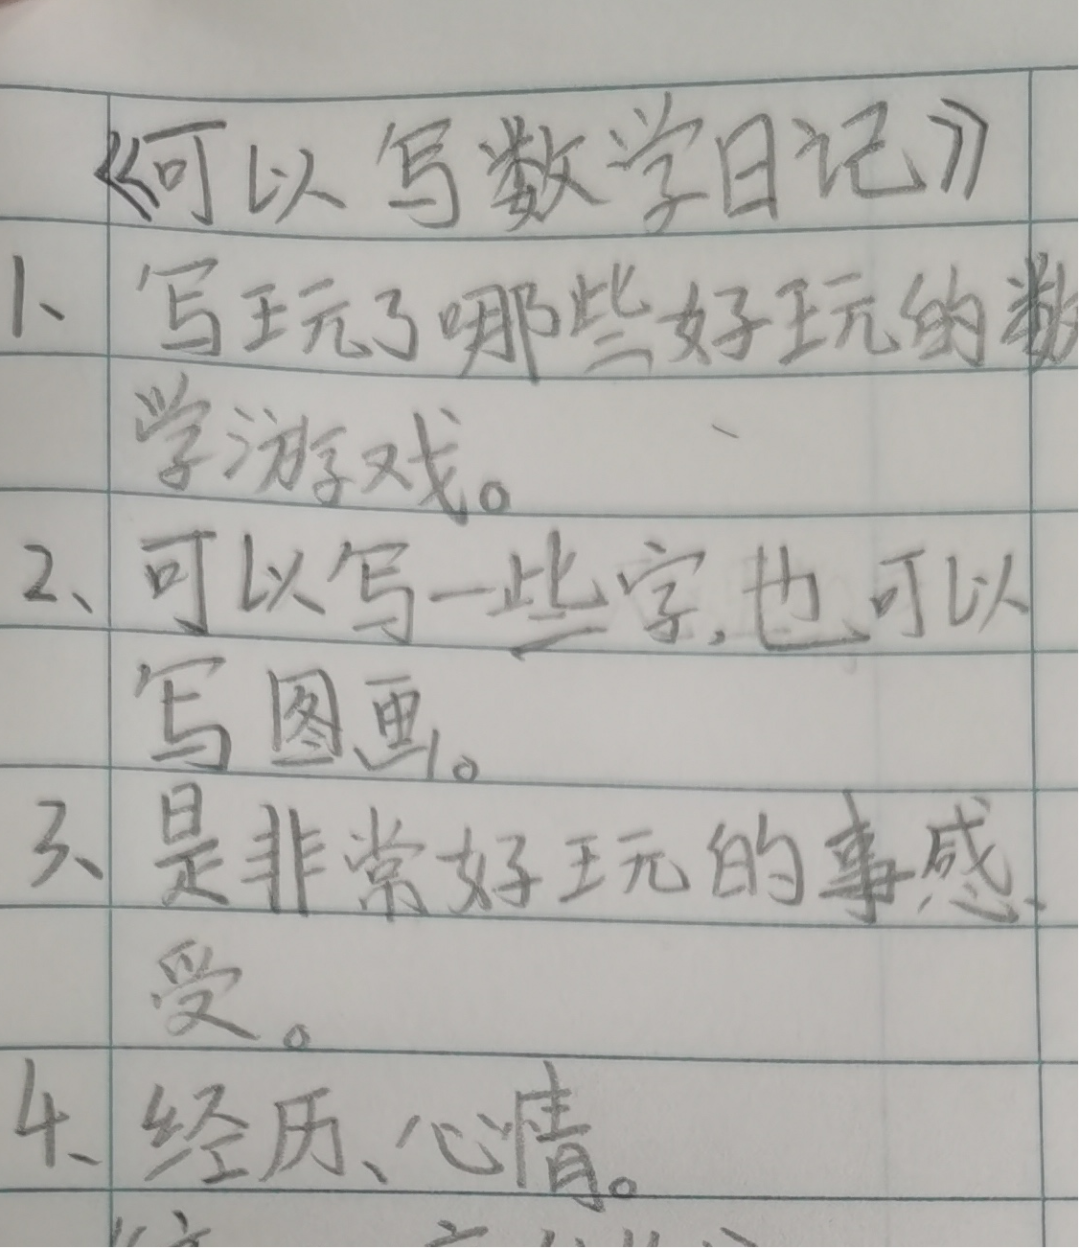 《可以写数学日记》
1、写玩了哪些好玩的数
学游戏。
2、可以写一些字,也可以
写图画。
3、是非常好玩的事感
受。
4、经历、心情。